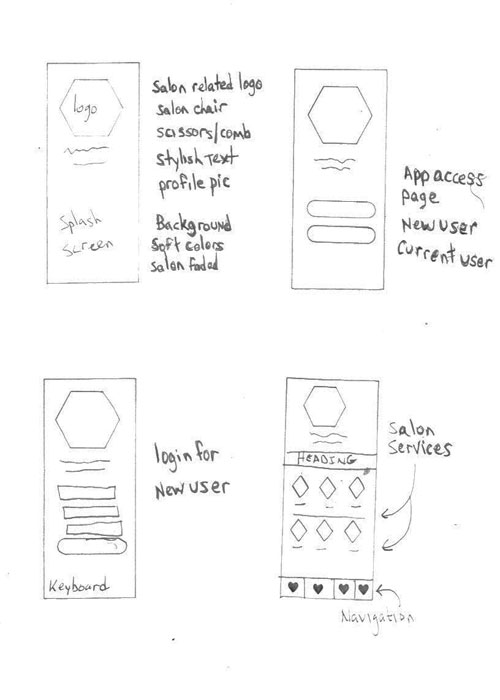 logo
Salon related logo
salon chair
scissors/comb
stylish Text
profile pic
Splash
Screen
Background
Soft colors
Salon faded
App access
page
New user
Current user
login for
New user
Keyboard
HEADING
Salon
Services
Navigation